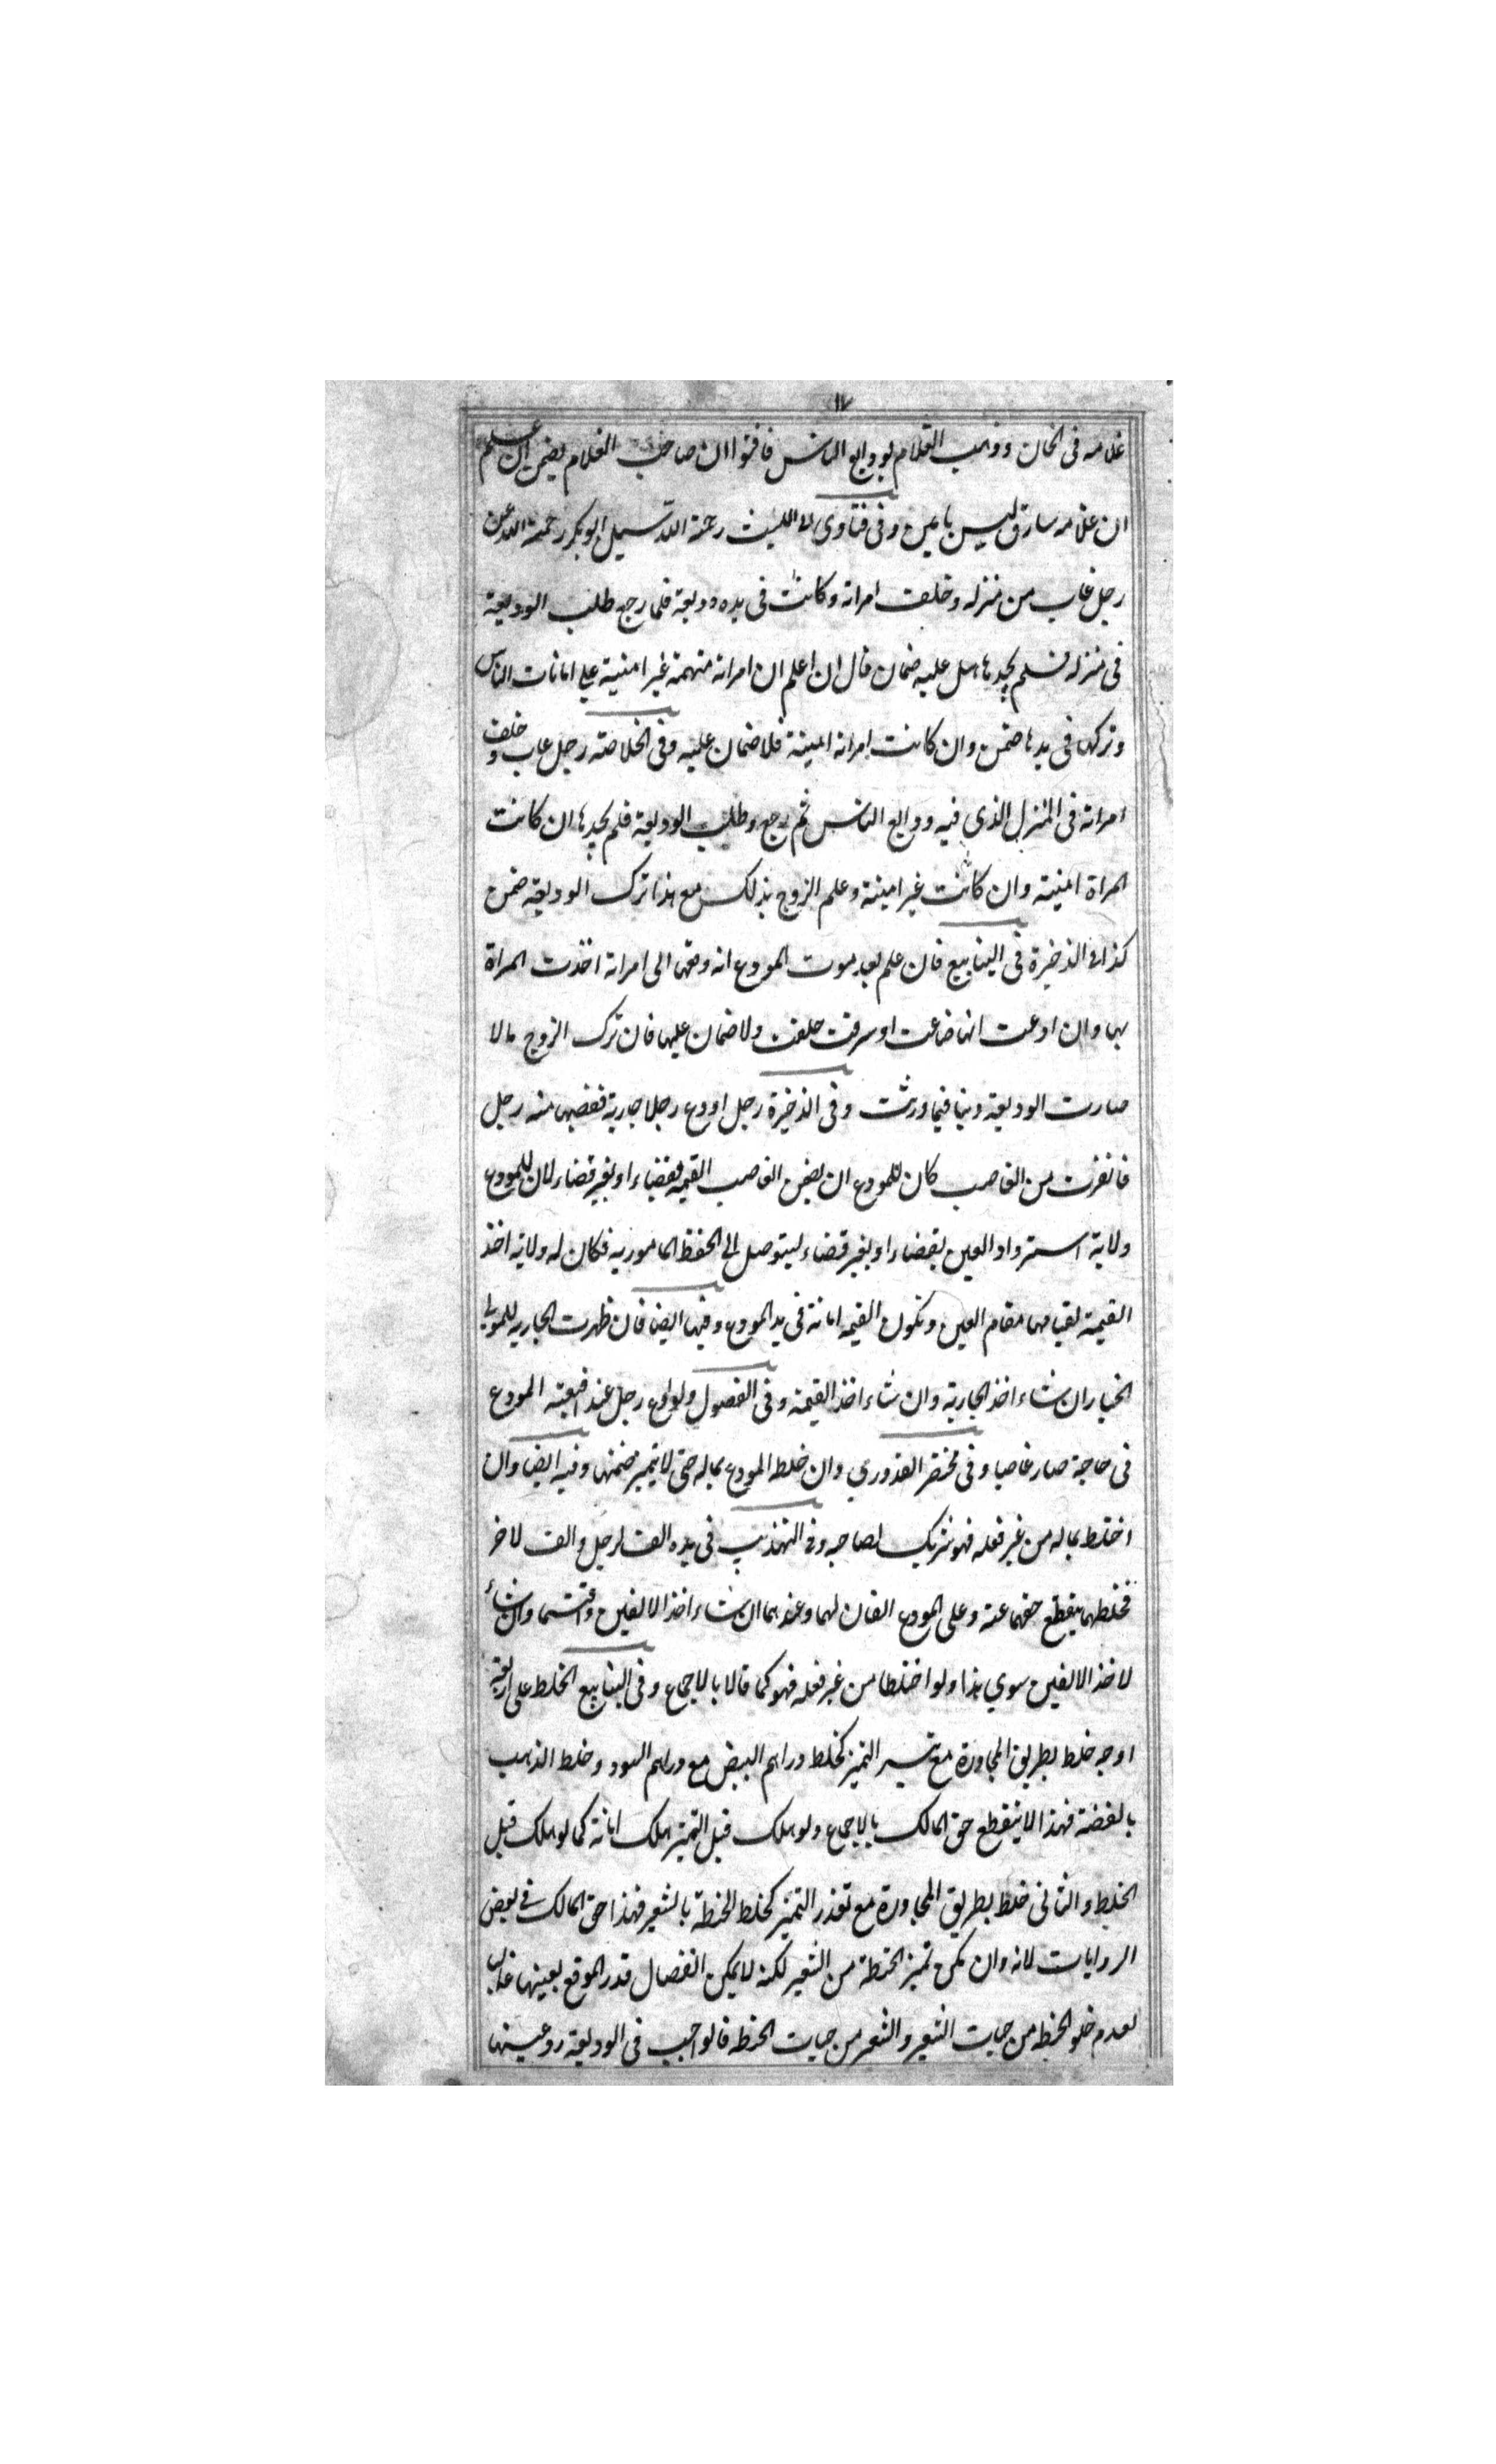 ١٧
غلامه فى الخان وذهب الغلام بودايع الناس فافتوا ان صاحب الغلام يضمن ان علم
ان غلامه سارق ليس بامين وفى فتاوى ابى الليث رحمة الله سيل ابو بكر رحمة الله عن
رجل غاب من منزله وخلف امراته وكانت فى يده وديعة فلما رجع طلب الوديعة
فى منزله فلم يجدها هل عليه ضمان قال ان اعلم ان امراته متهمة غير امنية على امانات الناس
وتركها فى يدها ضمن وان كانت امراته امينة فلا ضمان عليه وفى الخلاصة رجل غاب وخلف
امراته فى المنزل الذى فيه ودايع الناس ثم رجع وطلب الوديعة فلم يجدها ان كانت
المراة امنية وان كانت غير امينة وعلم الزوج بذلك مع هذا ترك الوديعة ضمن
كذا فى الذخيرة فى الينابيع فان علم بعد موت المودع انه دفعها الى امراته اخذت المراة
بها وان ادعت انها ضاعت او سرقت حلفت ولا ضمان عليها فان ترك الزوج مالا
صارت الوديعة دينا فيما ورثت وفى الذخيرة رجل اودع رجلا جارية فغصبها منه رجل
من الغاصب كان للمودع ان يضمن الغاصب القيمة بقضاء او بغير قضاء لان للمودع
ولاية استرداد العين بقضاء او بغير قضاء ليتوصل الى الحفظ المامور به فكان له ولاية اخذ
القيمة لقيامها مقام العين وتكون القيمة امانة فى يد المودع وفيها ايضا فان ظهرت الجارية للمولى
الخيار ان شاء اخذ الجارية وان شاء اخذ القيمة وفى الفصول ولو اودع رجل عند المودع
فى حاجة صار غاصبا وفى مختصر القدورى وان خلط المودع بماله حتى لا يتميز ضمنها وفيه ايضا وان
اختلط بماله من غير فعله فهو شريك لصاحبه وفى التهذيب فى يده الف لرجل والف لاخر
فخلطهما ينقطع حقهما عنه وعلى المودع الفان لهما وعندهما ان شاء اخذ الالفين واقتسما وان شاء
لا خذ الالفين سوى هذا ولو اختلطا من غير فعله فهو كما قالا بالاجماع وفى الينابيع الخلط على اربعة
اوجه خلط بطريق المجاورة مع تيسر التميز كخلط دراهم البيض مع دراهم السود وخلط الذهب
بالفضة فهذا لا ينقطع حق المالك بالاجماع ولو هلك قبل التميز هلك امانة كما لو هلك قبل
الخلط والثانى خلط بطريق المجاورة مع تعذر التميز كخلط الحنطة بالشعير فهذا حق المالك فى بعض
الروايات لانه وان يمكن تميز الحنطة من الشعير لكنه لا يمكن انفصال قدر الموقع بعينها
لعدم خلو الحنطه من حبات الشعير والشعير من حبات الحنطه فالواجب فى الوديعة رد عينها